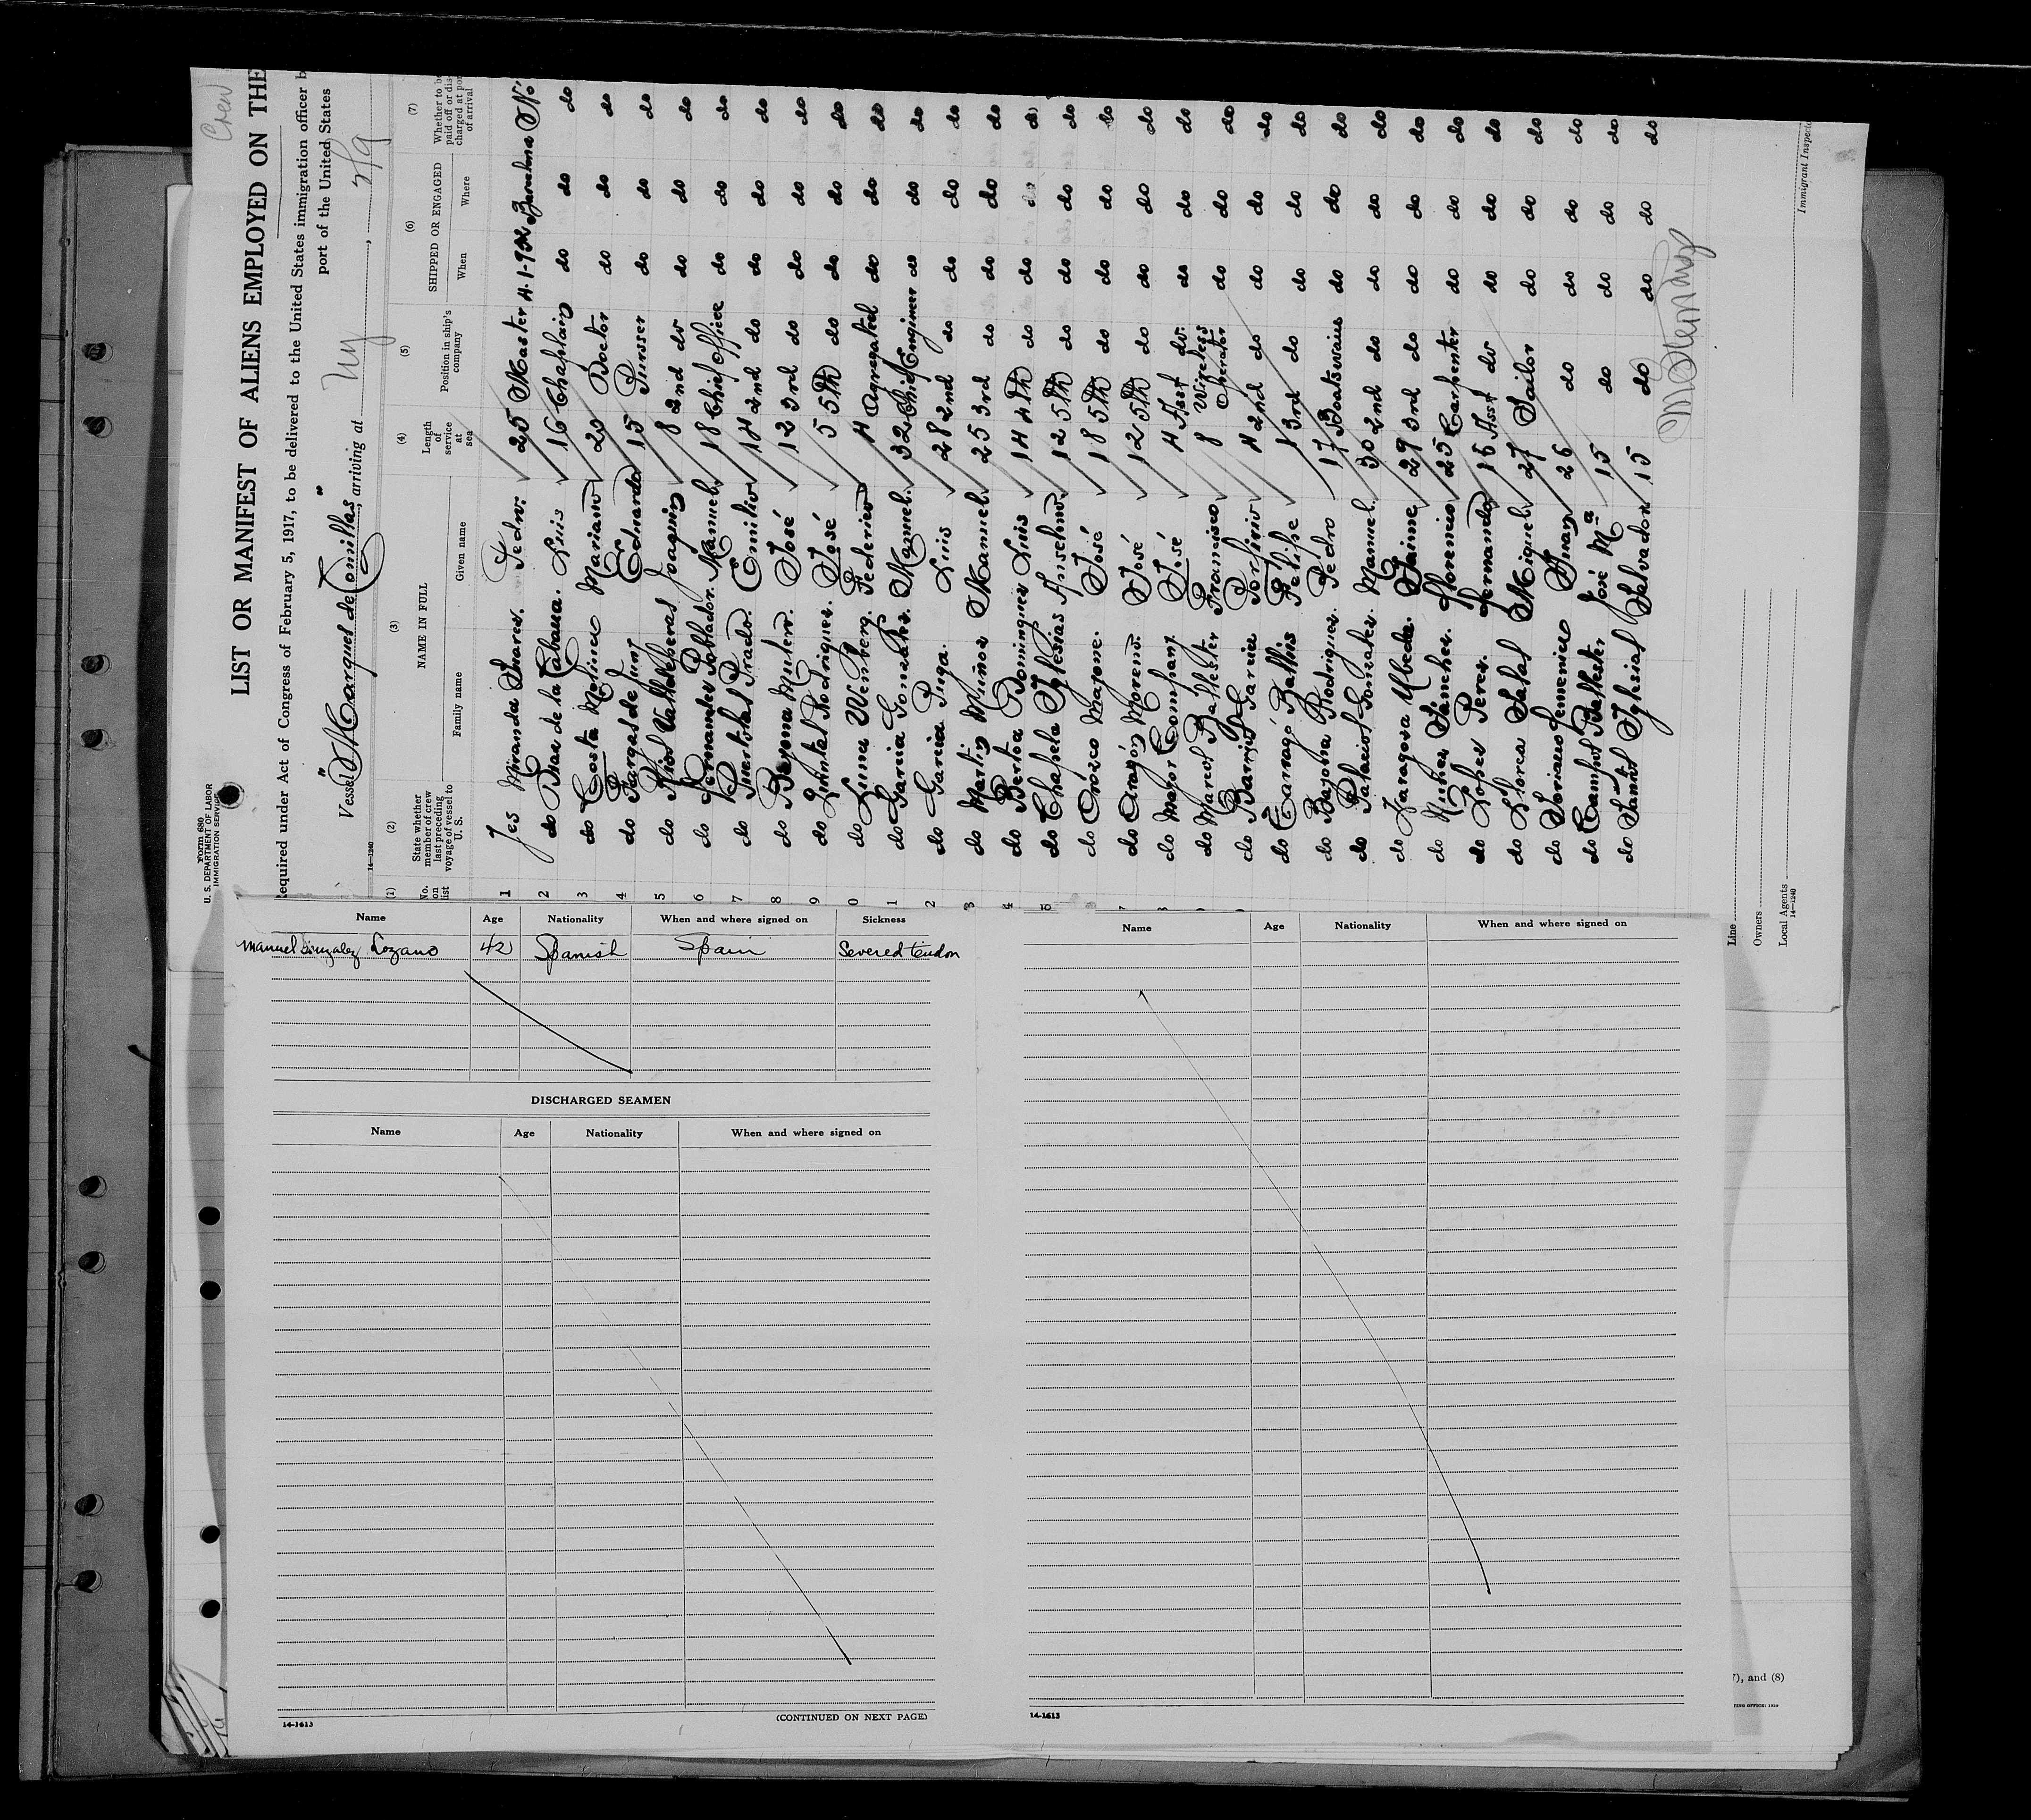 Crew
Form 680
U. S. DEPARTMENT OF LABOR
IMMIGRATION SERVICE
LIST OR MANIFEST OF ALIENS EMPLOYED ON THE
equired under Act of Congress of February 5, 1917, to be delivered to the United States immigration officer b
port of the United States
Vessel "Marques de Comillas", arriving at NY,
14—1240
(1) (2) (3) (4) (5) (6) (7)
No. on list
State whether member of crew last preceding voyage of vessel to U. S.
NAME IN FULL
Family name Given name
Length of service at sea
Position in ship's company
SHIPPED OR ENGAGED
When Where
Whether to be paid off or dis- charged at por of arrival
1 Yes Miranda Suarez. Pedro. 25 Master 4-1-932 Barcelona No
2 do Diaz de la Cabausa. Luis 16 Chaplain do do do
3 do Costa Molinea Mariano 20 Doctor do do do
4 do Fargas de Juny Eduardo 15 Pursser do do do
5 do Rios Valldeperas Joaquin 8 2nd do do do do
6 do Fernandez Poblador. Manuel 18 Chief office do do do
7 do Puertolas Prado. Emilio 14 2nd do do do do
8 do Bayona Mulero. José 12 3rd do do do do
9 do Quintas Rodriguez. José 5 5th do do do do
0 do Luna Wennerg. Federico 4 Agregated do do do
1 do Garcia Gonzalez. Manuel. 32 Chief Engineer do do do
2 do Garcia Puga. Luis 28 2nd do do do do
3 do Martin Muñoz Manuel. 25 3rd do do do do
4 do Bertoa Dominguez Luis 14 4th do do do do
5 do Chapela Iglesias Anselmo. 12 5th do do do do
do Orozco Majone. José 18 5th do do do do
7 do Aragón Moreno. José 12 5th do do do do
8 do Major Company. José 4 Asst do. do do do
do Marcos Ballester Francisco 8 Wireless Operator do do do
do Barrios Garcia Porfirio 4 2nd do do do do
do Tarragó Batllis Felipe 1 3rd do do do do
do Bajona Rodriguez. Pedro 17 Boatswain do do do
do Palacios Gonzalez. Manuel. 30 2nd do do do do
do Zaragosa Ubeda. Jaime 29 3rd do do do do
do Nuñez Sanchez. Florencio 25 Carpenter do do do
do Lopez Perez. Fernando 16 Asst do do do do
do Llorca Salas Miguel 27 Sailor do do do
do Soriano Jemenico Juan 26 do do do do
do Camps Ballester. José Mª 15 do do do do
do Santos Iglesias Salvador 15 do do do do
Immigrant Inspect
Line
Owners
Local Agents
14—1240
Name Age Nationality When and where signed on Sickness
Manuel Gonzalez Lozano 42 Spanish Spain Severed tendon
DISCHARGED SEAMEN
Name Age Nationality When and where signed on
14-1613
(CONTINUED ON NEXT PAGE)
Name Age Nationality When and where signed on
14-1613
7), and (8)
TING OFFICE: 1929